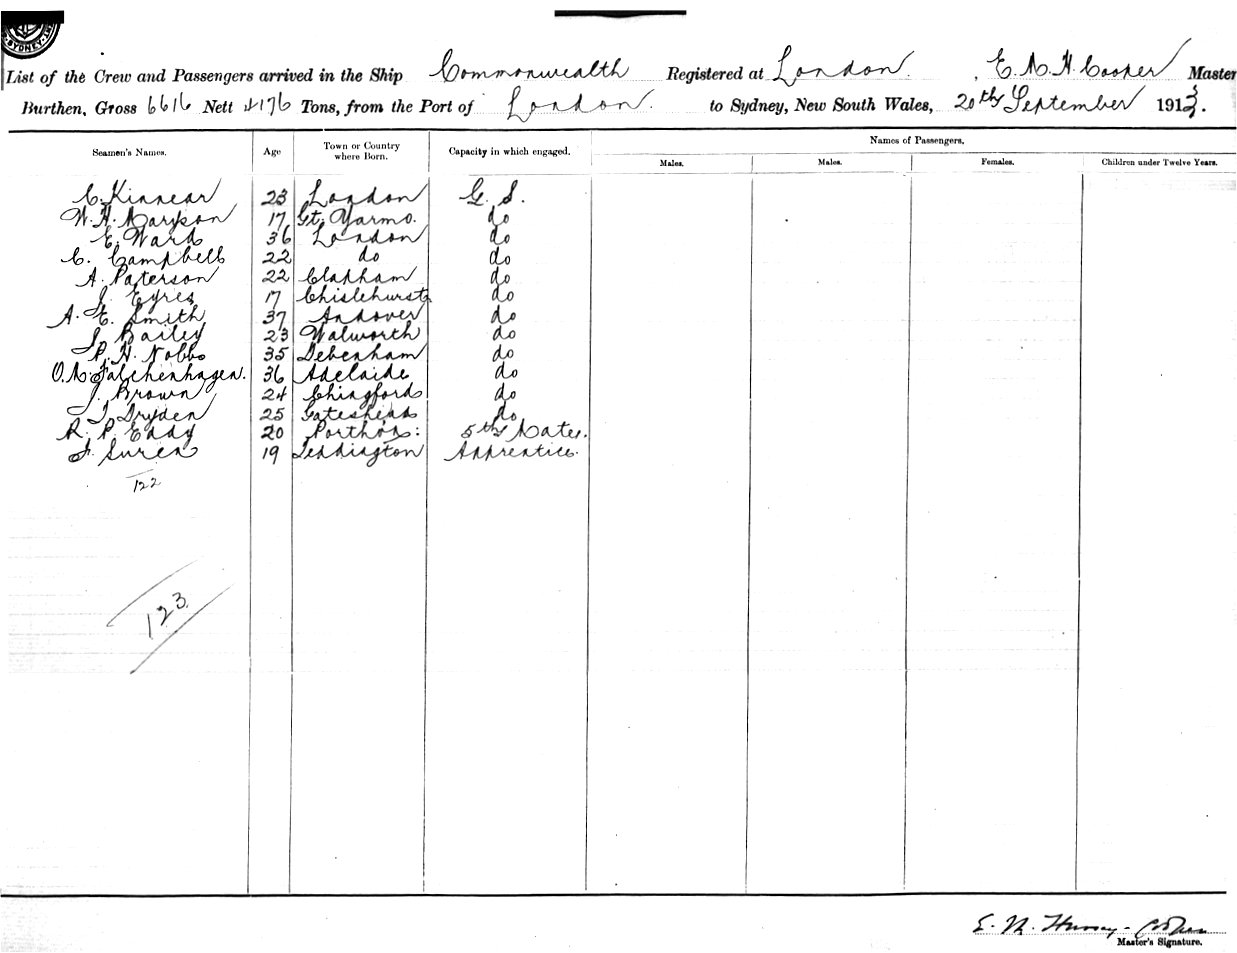 SYDNEY
List of the Crew and Passengers arrived in the Ship Commonwealth Registered at London. , E. M. H. Cooper Master
Burthen, Gross 6616 Nett 4176 Tons, from the Port of London. to Sydney, New South Wales, 20th September 1913.
Seamen's Names. Age Town or Country where Born. Capacity in which engaged. Names of Passengers.
Males. Males. Females. Children under Twelve Years.
C. Kinnear 23 London G. S.
W. H. 17 Gt. Yarmo. do
E. Ward 36 London do
C. Campbell 22 do do
A. Paterson 22 Clapham do
J. Eyres 17 Chislehurst do
A. E. Smith 37 Andover do
J. Bailey 23 Walworth do
P. H. Nobbs 35 Debenham do
O. M. Falchenhagen. 36 Adelaide do
J. Brown 24 Chingford do
J. Dryden 25 Gateshead do
R. P. Eddy 20 5th Mate.
J. Suren 19 Teddington Apprentice.
122
123
E. M.
Master's Signature.